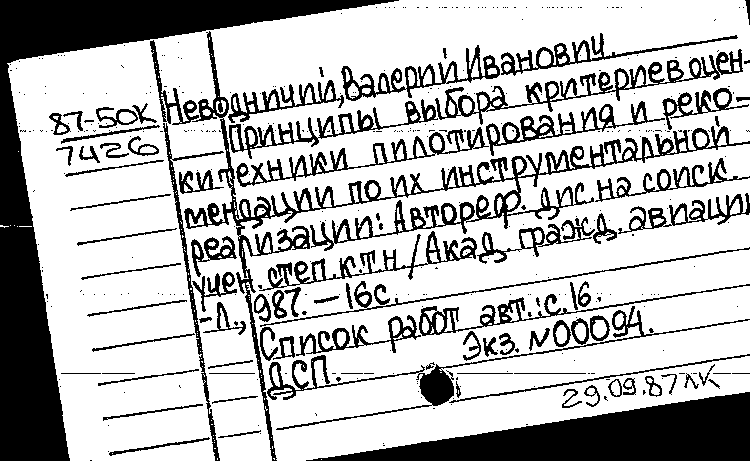 87-50К
7426
Неводничий, Валерий Иванович.
Принципы выбора критериев оцен-
ки техники пилотирования и реко-
мендации по их инструментальной
реализации: Автореф. дис. на соиск.
учен. степ. к.т.н. / Акад. гражд. авиации
-Л., 1987. — 16с.
Список работ авт.: с. 16.
Экз. N00094.
ДСП.
29.09.87 ЛК